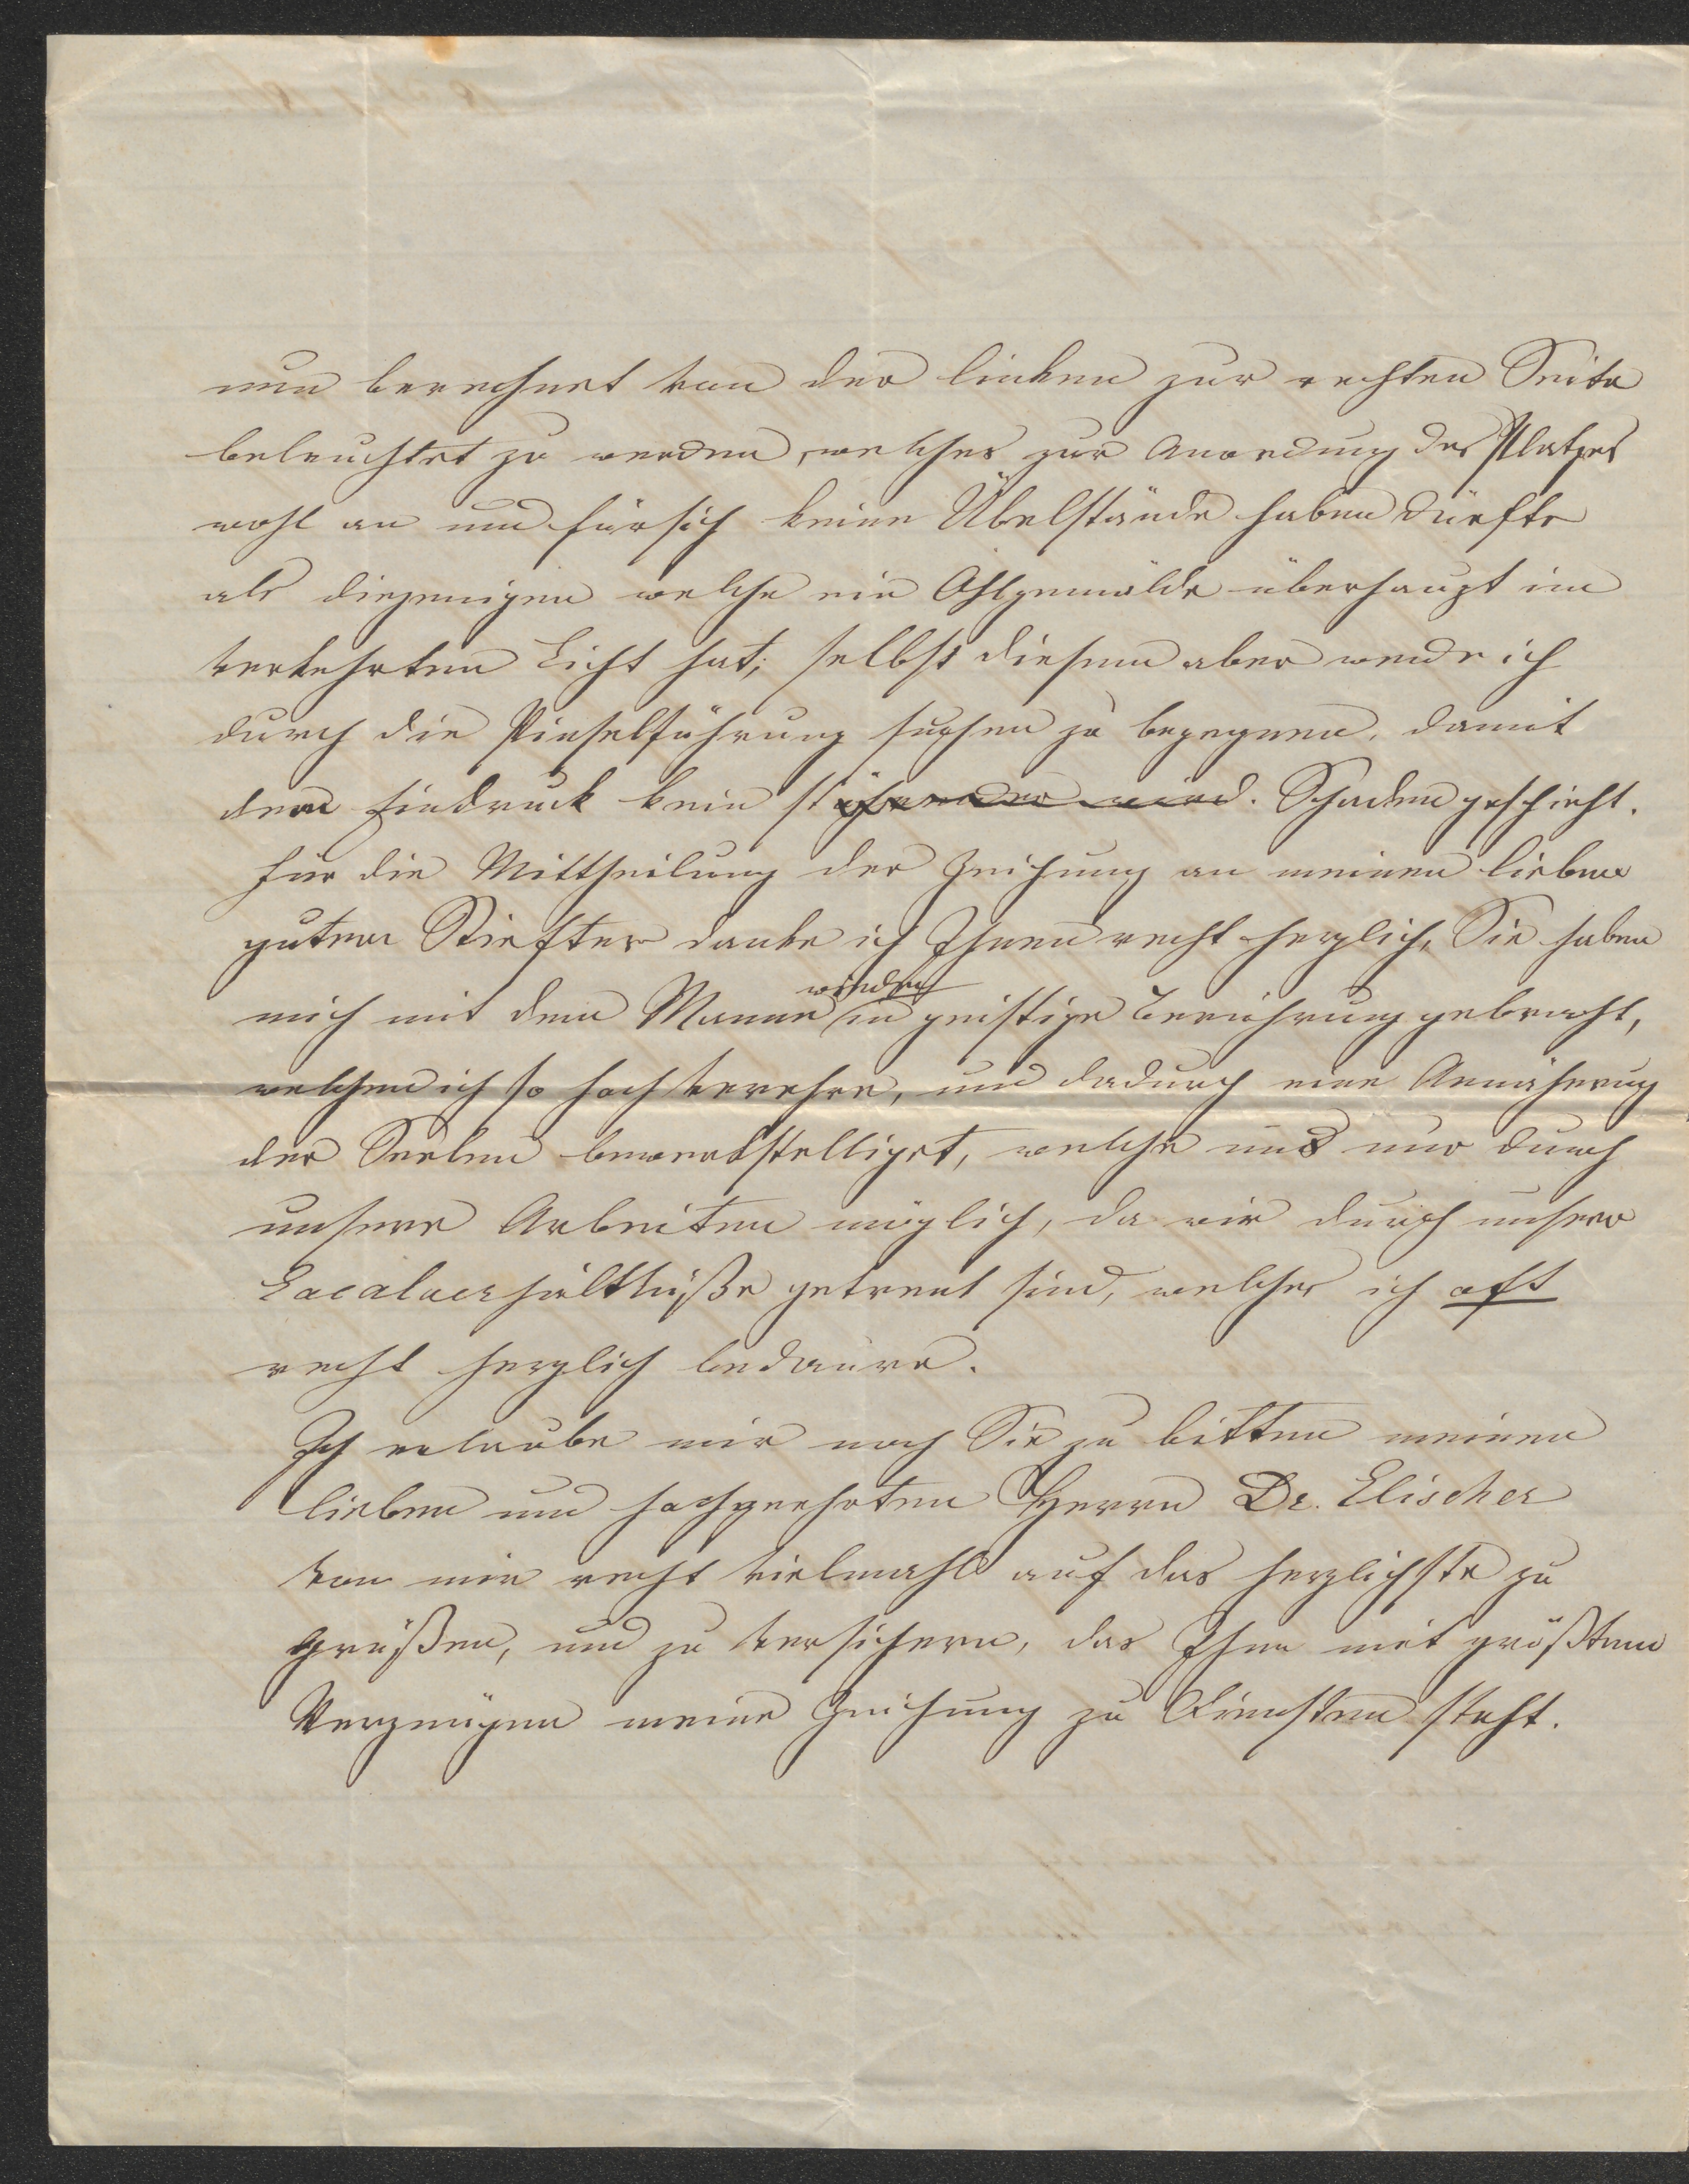 nun berechnet von der linken zur rechten Seite
beleuchtet zu werden, welches zur Anordnung des Platzes
wohl an und für sich keine Übelstände haben dürfte
als diejenigen welche ein Öhlgemälde überhaupt im
verkehrten Licht hat; selbst diesem aber werde ich
durch die Pinselführung suchen zu begegnen, damit
dem Eindruck kein störender wird. Schaden geschieht.
für die Mittheilung der Zeichung an meinen lieben
guten Stiefter danke ich Ihnen recht herzlich, Sie haben
wieder
mich mit dem Manne in geistige Berührung gebracht,
welchen ich so hoch verehre, und dadurch eine Annäherung
der Seelen bewerkstelliget, welche uns nur durch
unsere Arbeiten möglich, da wir durch unsere
Localverhältniße getrent sind, welches ich oft
recht herzlich bedaure.
Ich erlaube mir noch Sie zu bitten meinen
lieben und hochgeehrten Herrn Dr. Elischer
von mir recht vielmahls auf das herzlichste zu
grüßen, und zu versichern, das Ihm mit größtem
Vergnügen meine Zeichung zu Diensten steht.